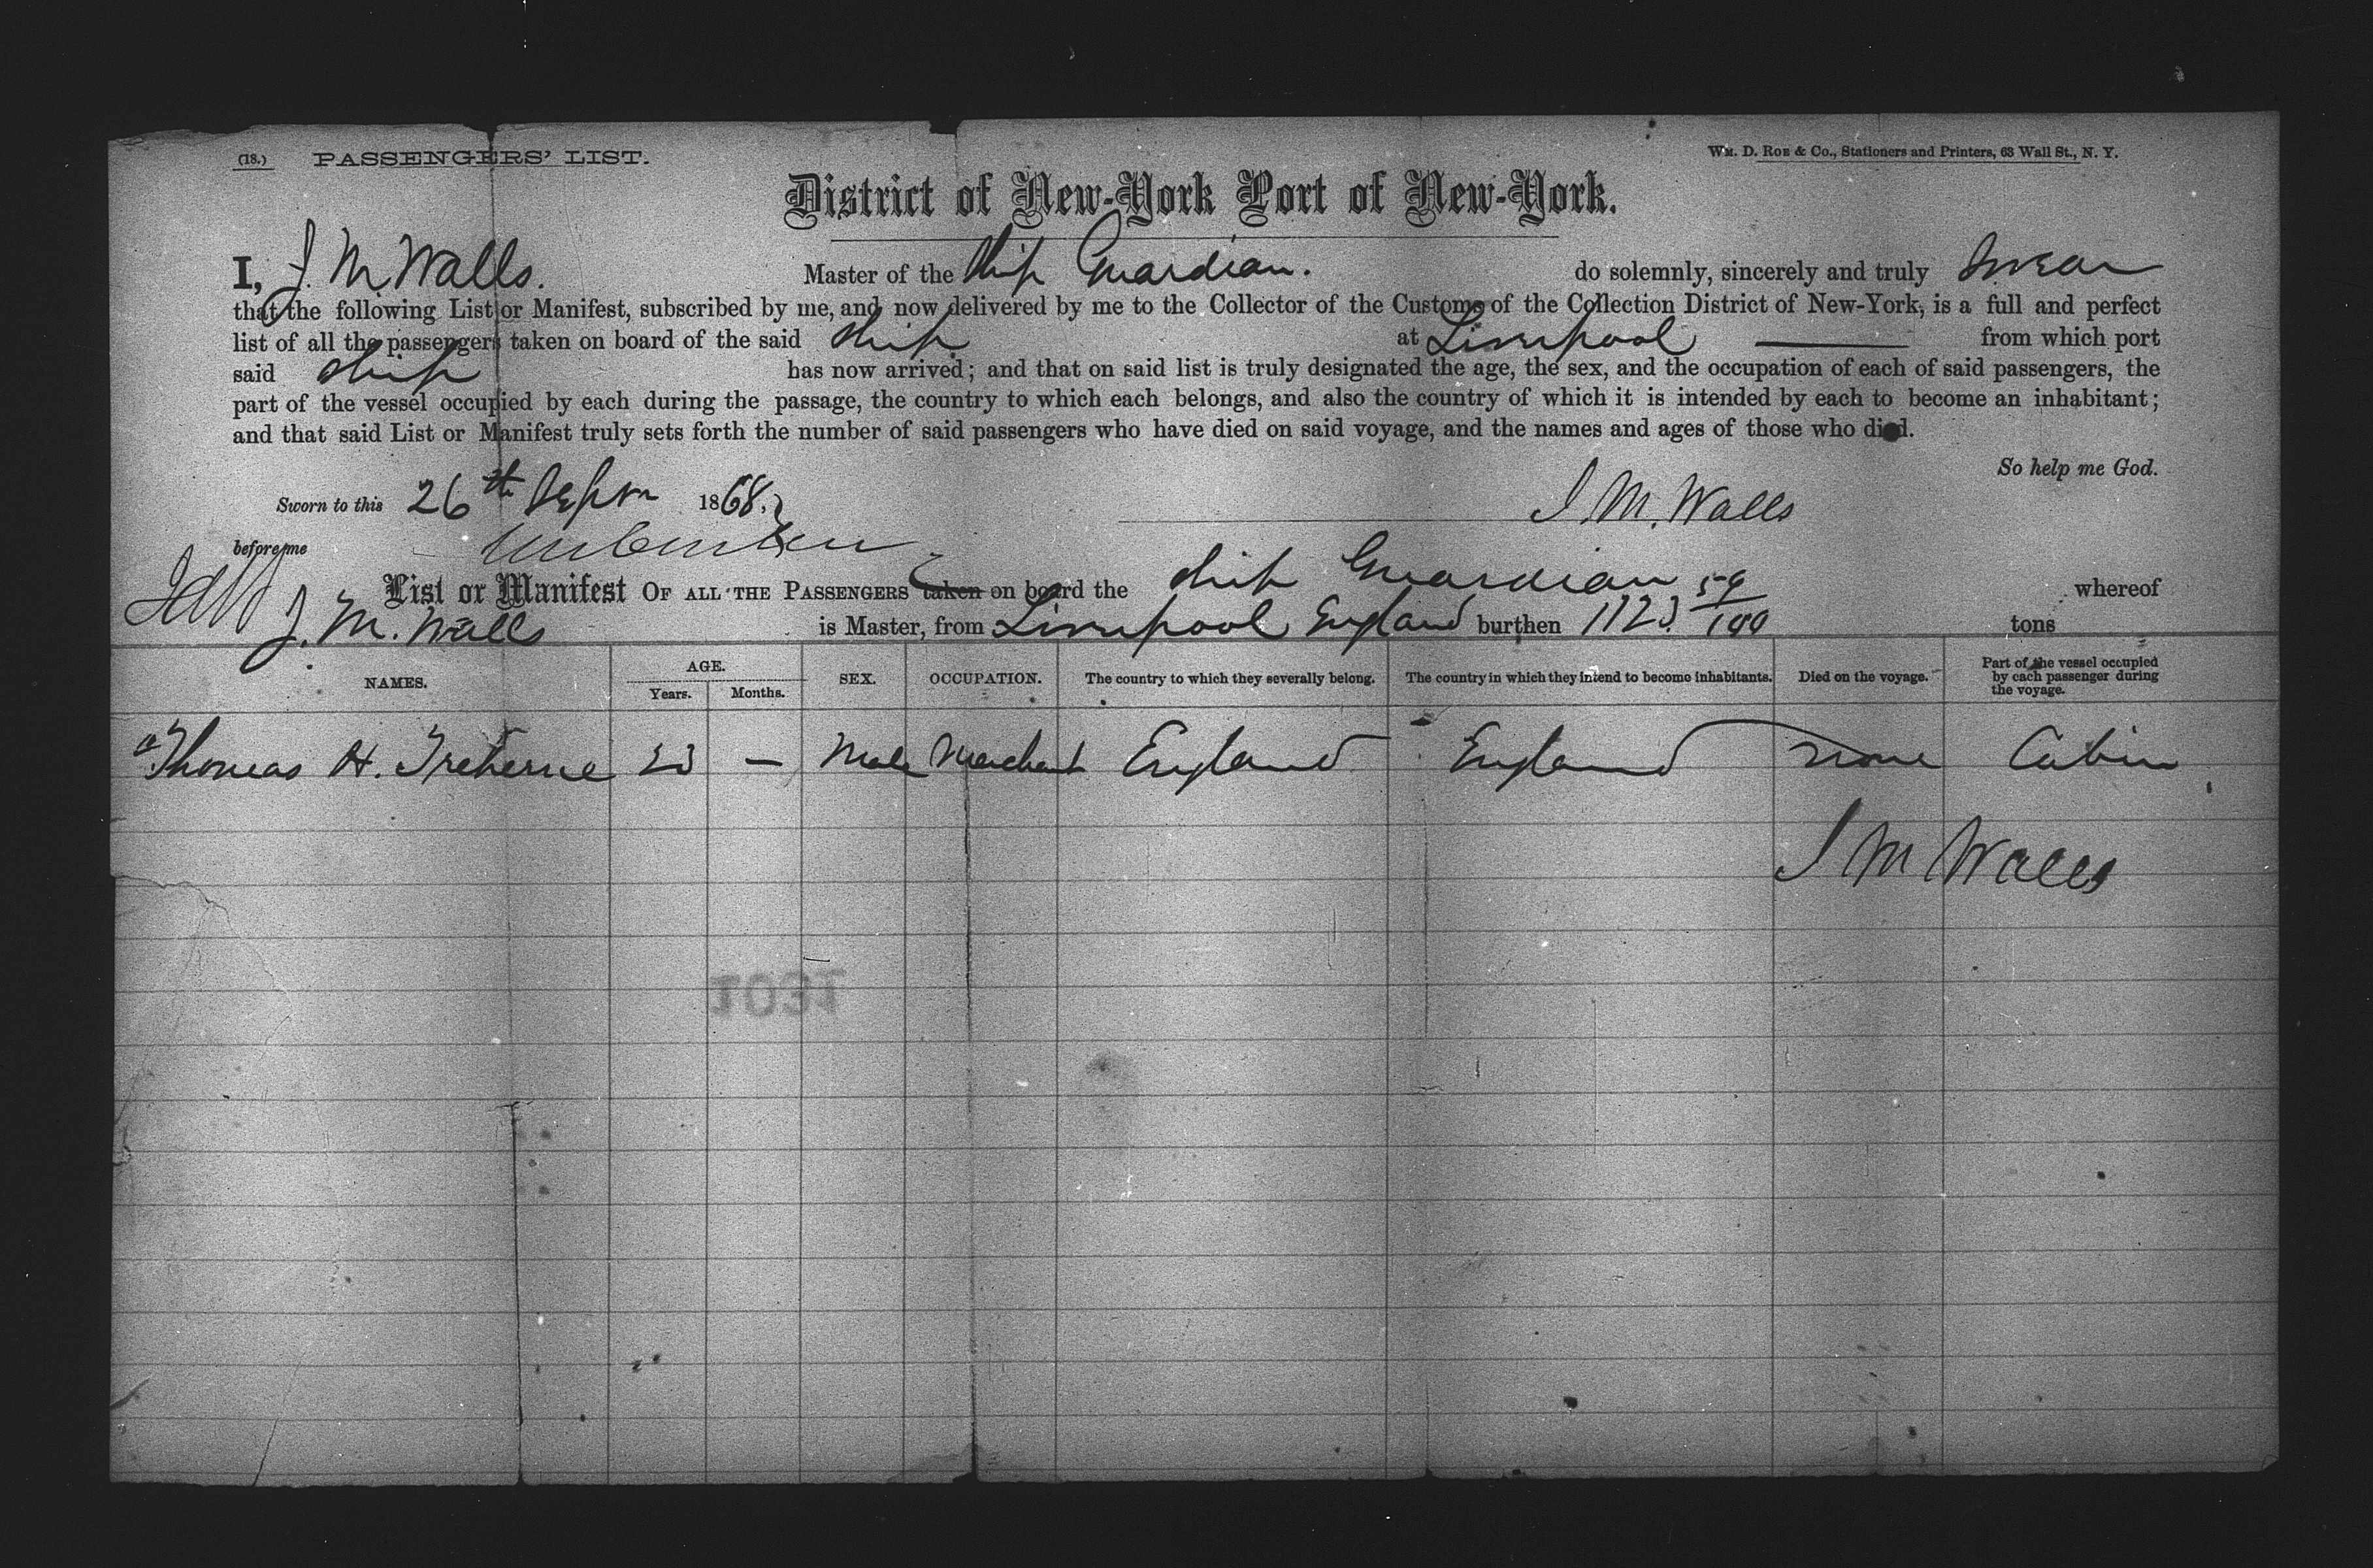 (18.) PASSENGERS' LIST.
Wm. D. Roe & Co., Stationers and Printers, 63 Wall St., N. Y.
District of New-York Port of New-York.
I, J. M. Walls. Master of the Ship Guardian. do solemnly, sincerely and truly Swear
that the following List or Manifest, subscribed by me, and now delivered by me to the Collector of the Customs of the Collection District of New-York, is a full and perfect
list of all the passengers taken on board of the said Ship at Liverpool — from which port
said ship has now arrived; and that on said list is truly designated the age, the sex, and the occupation of each of said passengers, the
part of the vessel occupied by each during the passage, the country to which each belongs, and also the country of which it is intended by each to become an inhabitant;
and that said List or Manifest truly sets forth the number of said passengers who have died on said voyage, and the names and ages of those who died.
So help me God.
Sworn to this 26th 1868. J. M. Walls
before me
List or Manifest OF ALL THE PASSENGERS taken on board the ship Guardian whereof
J. M. Walls is Master, from Liverpool England burthen 1123 59/100 tons
NAMES. AGE. Years. Months. SEX. OCCUPATION. The country to which they severally belong. The country in which they intend to become inhabitants. Died on the voyage. Part of the vessel occupied by each passenger during the voyage.
Thomas H. Treherne 23 — Male Merchant England England none Cabin
J M Walls
1031